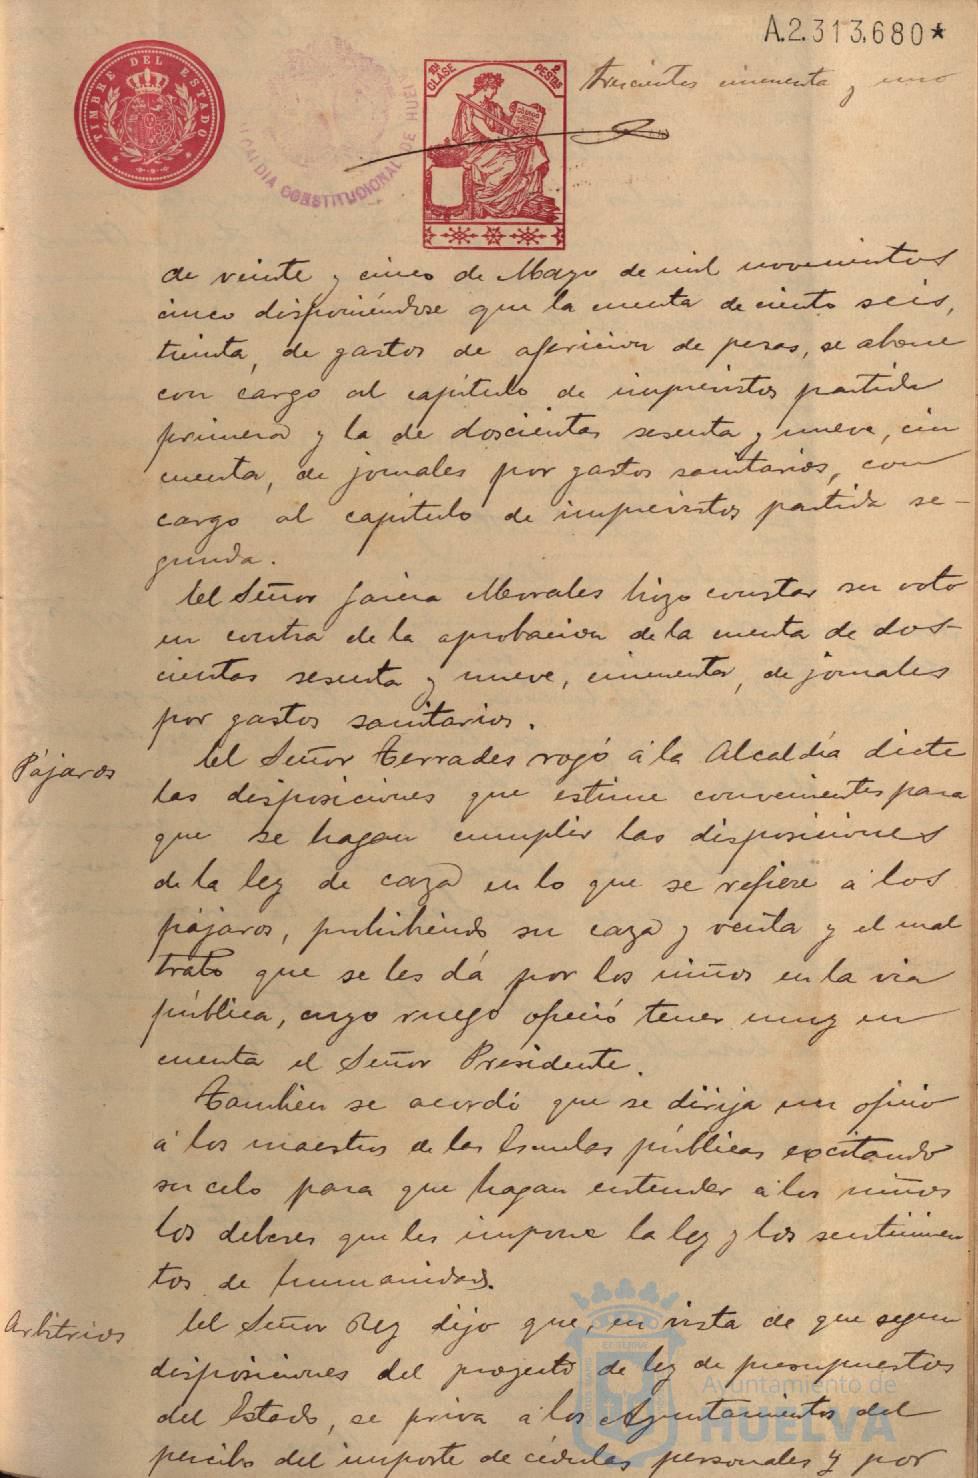 A.2.313,680*
TIMBRE DEL ESTADO
ALCALDIA CONSTITUCIONAL DE HUEL
10ª CLASE
2 PESETAS
trescientos cincuenta y uno
de veinte y cinco de Mayo de mil novecientos
cinco disponiéndose que la cuenta de ciento seis,
treinta, de gastos de afericion de pesas, se abone
con cargo al capítulo de imprevistos partida
primera y la de doscientas sesenta y nueve, cin
cuenta, de jornales por gastos sanitarios, con
cargo al capítulo de imprevistos partida se-
gunda.
El Señor García Morales hizo constar su voto
en contra de la aprobacion de la cuenta de dos-
cientas sesenta y nueve, cincuenta, de jornales
por gastos sanitarios.
Pájaros
El Señor Terrades rogó á la Alcaldía dicte
las disposiciones que estime convenientes para
que se hagan cumplir las disposiciones
de la ley de caza en lo que se refiere á los
pájaros, prohibiendo su caza y venta y el mal
trato que se les dá por los niños en la via
pública, cuyo ruego ofreció tener muy en
cuenta el Señor Presidente.
Tambien se acordó que se dirija un oficio
á los maestros de las Escuelas públicas excitando
su celo para que hagan entender á los niños
los deberes que les impone la ley y los sentimien
tos de humanidad.
Arbitrios
El Señor Rey dijo que, en vista de que segun
disposiciones del proyecto de ley de presupuestos
del Estado, se priva á los Ayuntamientos del
percibo del importe de cédulas personales y por
Ayuntamiento de
HUELVA